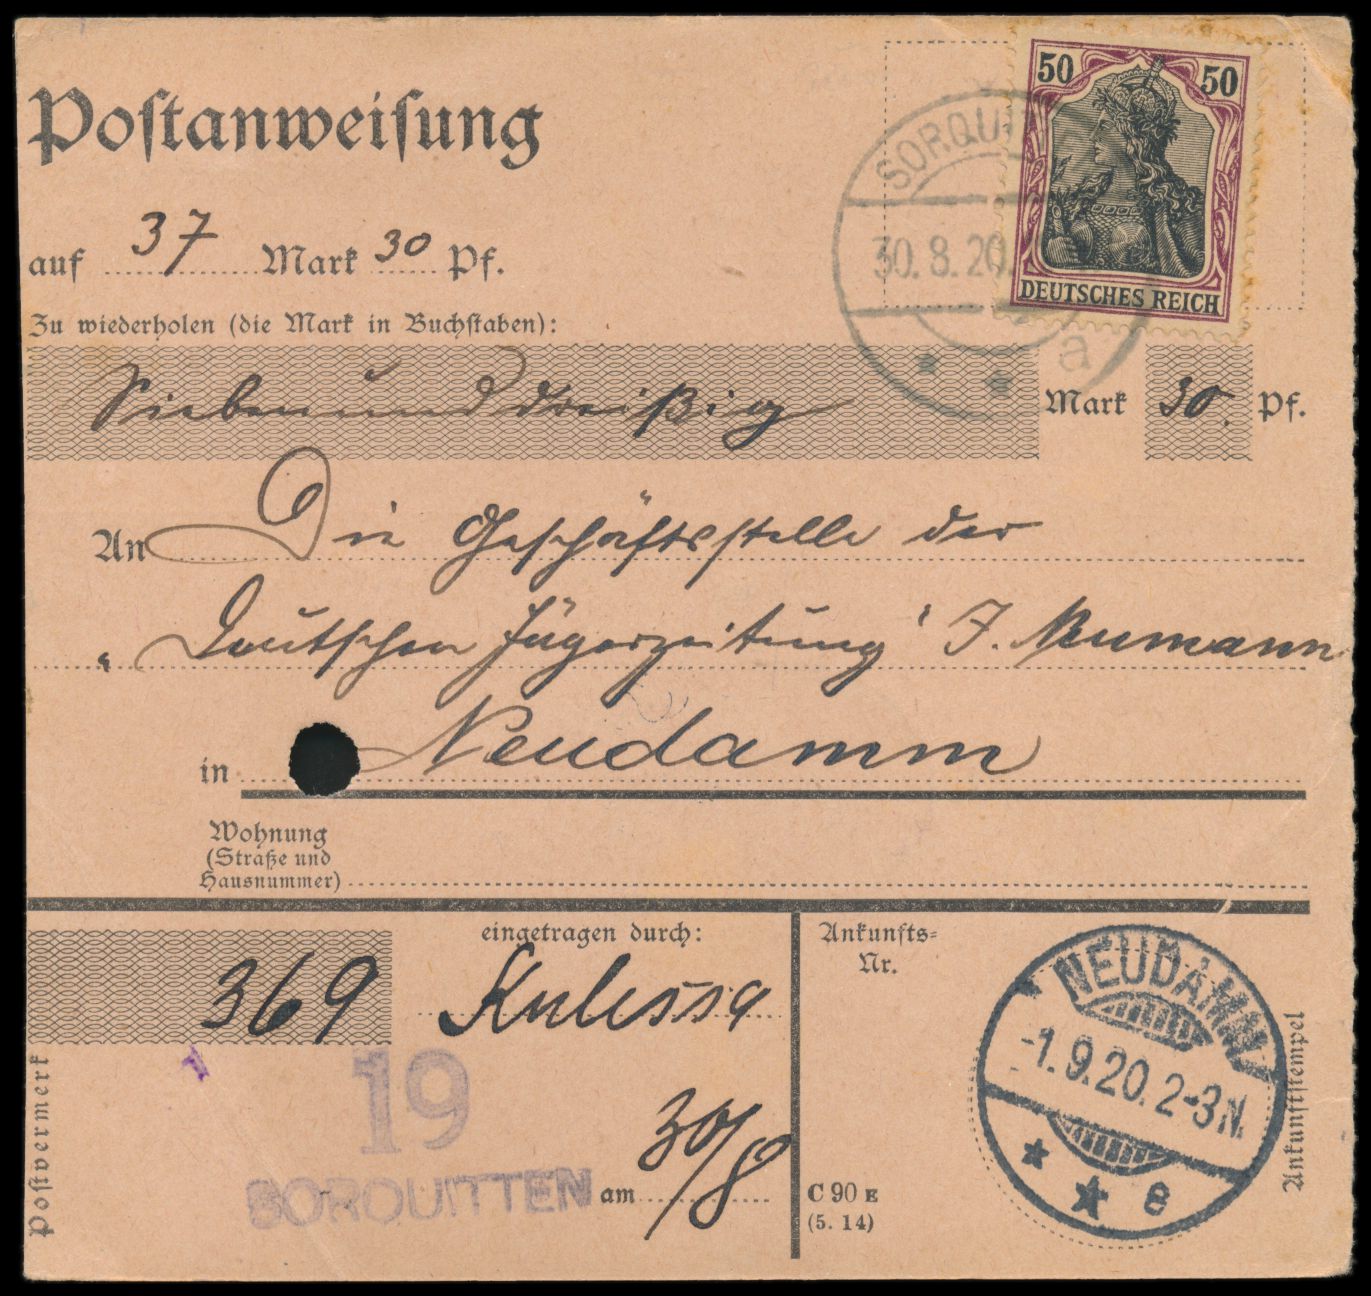 Postanweisung
50 50
DEUTSCHES REICH
SORQUI
30. 8. 20.
a
auf 37 Mark 30 Pf.
Zu wiederholen (die Mark in Buchstaben):
Siebenunddreißig Mark 30. Pf.
An Die Geschäftsstelle der
„Deutschen Jägerzeitung‘ J. Neumann
in Neudamm
Wohnung
(Straße und
Hausnummer)
369
eingetragen durch:
Kulessa
Ankunfts=
Nr.
NEUDAMM
-1.9.20.2-3N.
e
Ankunftstempel
Postvermerk
19
SORQUITTEN
am 30/8
C 90 E
(5. 14)